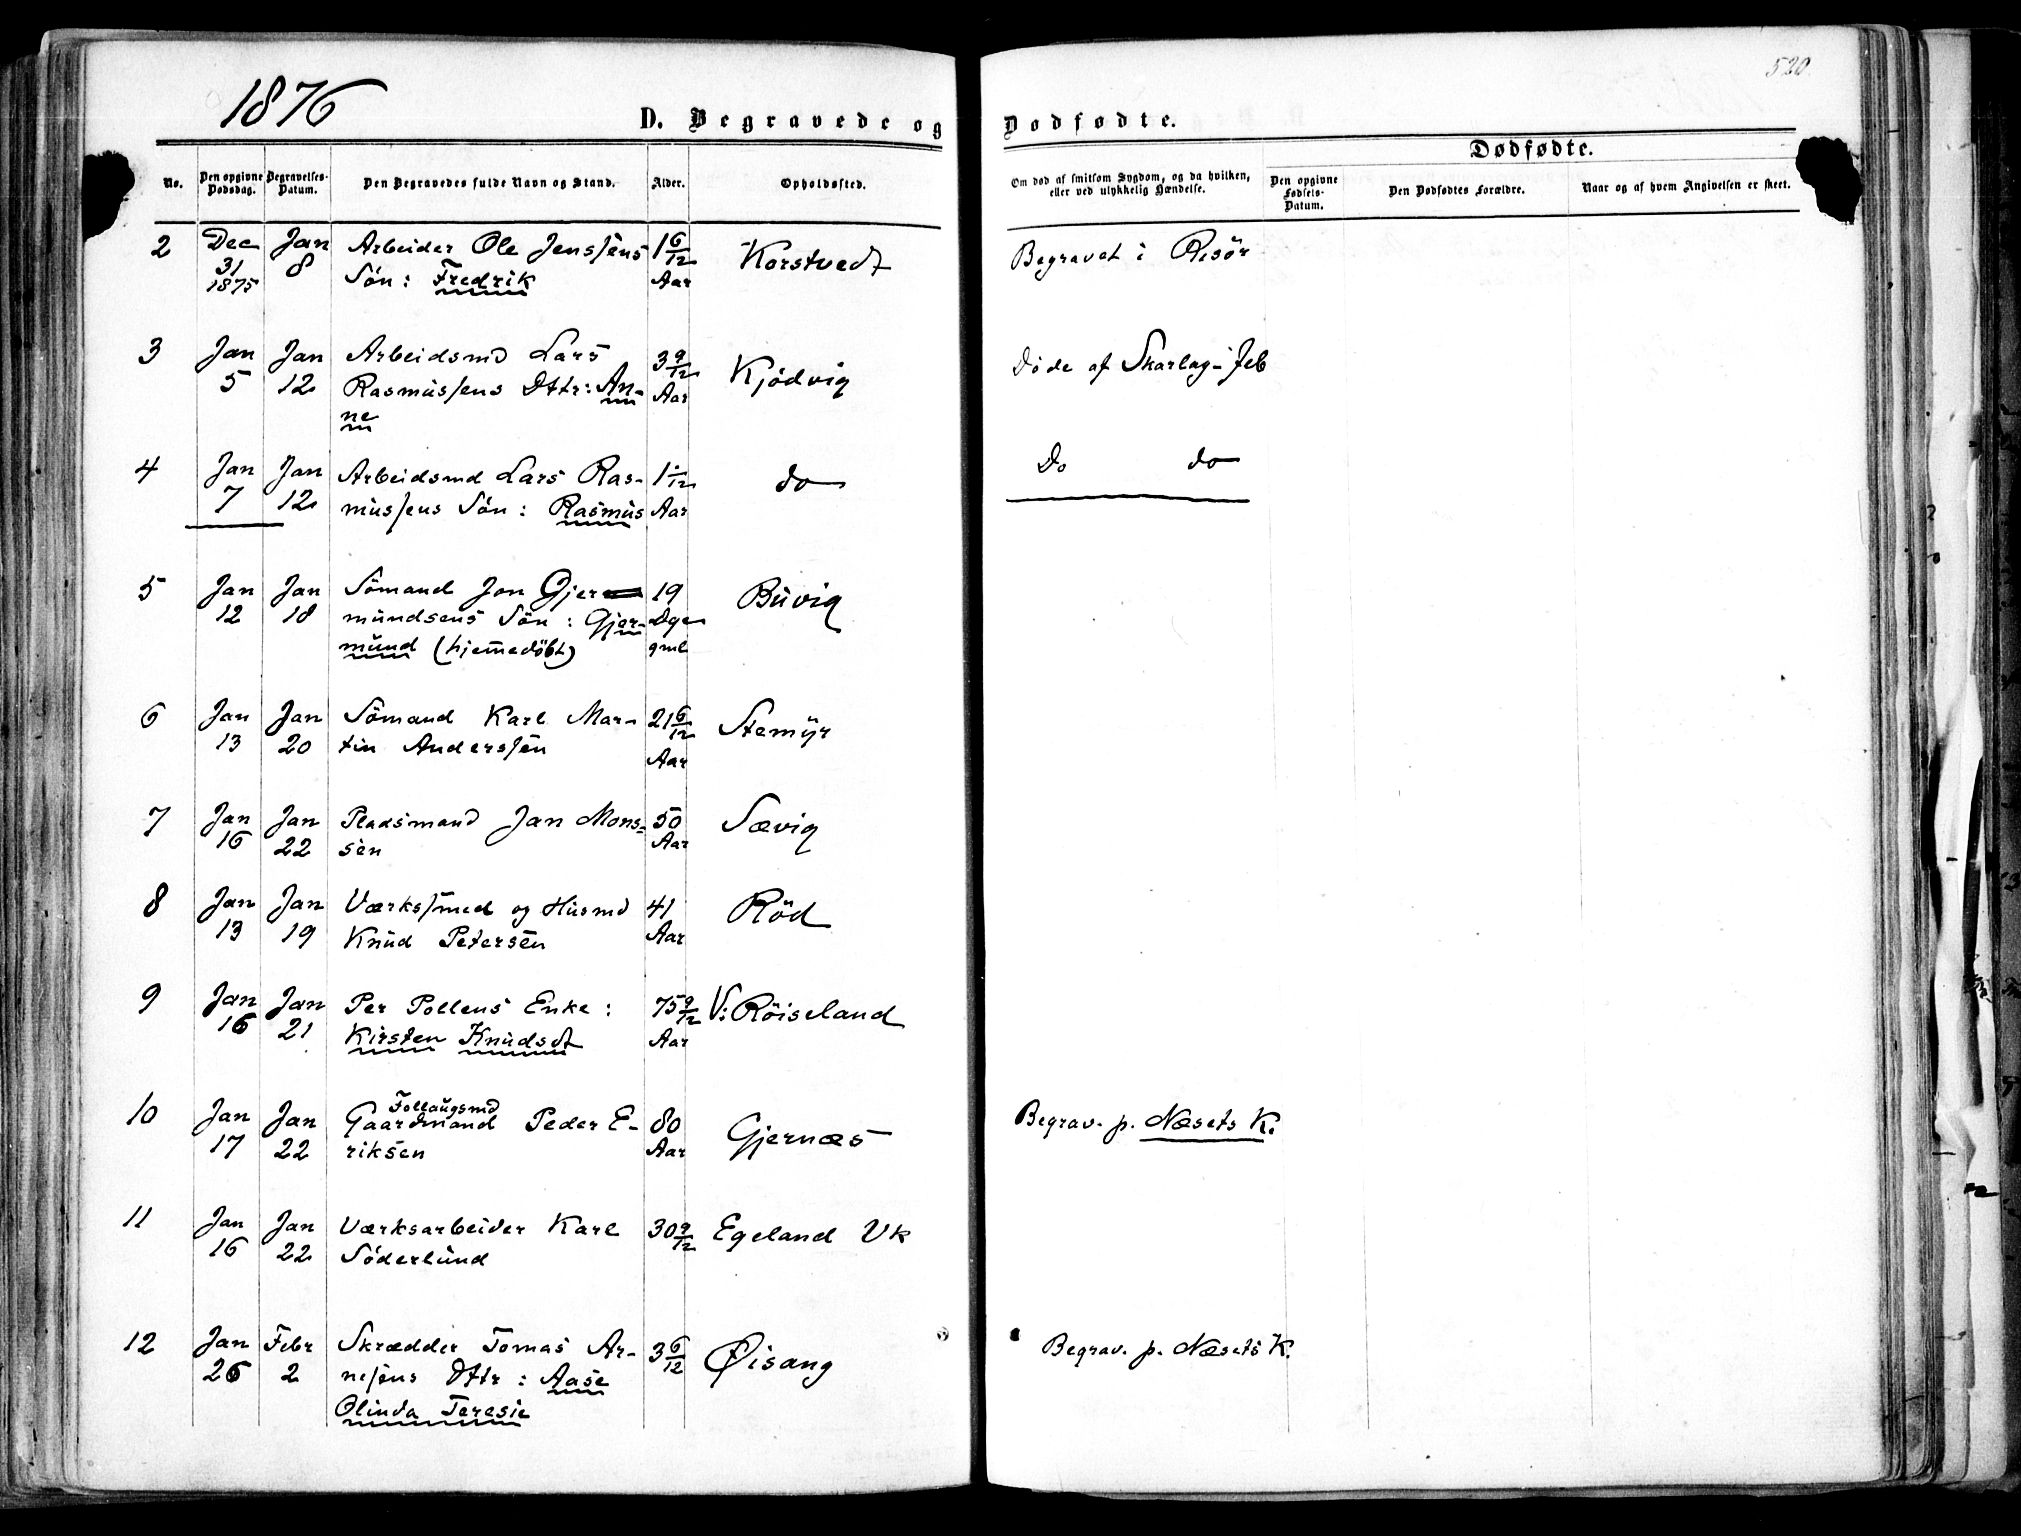 520
1876
D. Begravede og Dødfødte.
No.
Den opgivne Dødsdag.
Begravelses-Datum.
Den Begravedes fulde Navn og Stand.
Alder.
Opholdssted.
Om død af smitsom Sygdom, og da hvilken, eller ved ulykkelig Hændelse.
Dødfødte.
Den opgivne Fødsels-Datum.
Den Dødfødtes Forældre.
Naar og af hvem Angivelsen er skeet.
2 Dec Jan Arbeider Ole Jenssens 1 6/12 Korstvedt Begravet i Risör
31 8 Sön: Fredrik Aar
1875
3 Jan Jan Arbeidsmd Lars 3 9/12 Kjödvig Döde af Skarlag-feb
5 12 Rasmussens Dttr: An- Aar
ne
4 Jan Jan Arbeidsmd Lars Ras- 1 1/12 do Do do
7 12 mussens Sön: Rasmus Aar
5 Jan Jan Sömand Jon Gjer 19 Buvig
12 18 mundsens Sön: Gjer- Dge
mund (hjemmedöbt) gml
6 Jan Jan Sömand Karl Mar- 21 6/12 Stemyr
13 20 tin Anderssen Aar
7 Jan Jan Pladsmand Jan Mons- 50 Sævig
16 22 sen Aar
8 Jan Jan Værkssmed og Husmd 41 Röd
13 19 Knud Petersen Aar
9 Jan Jan Per Pollens Enke: 75 9/12 V: Röiseland
16 21 Kirsten Knudsdt Aar
10 Jan Jan Follaugsmd Gaardmand Peder E- 80 Gjernæs Begrav. p. Næsets K.
17 22 riksen Aar
11 Jan Jan Værksarbeider Karl 30 9/12 Egeland Vk
16 22 Söderlund
12 Jan Febr Skrædder Tomas Ar- 3 6/12 Øisang Begrav. p. Næsets K.
26 2 nesens Dttr: Aase
Olinda Teresie